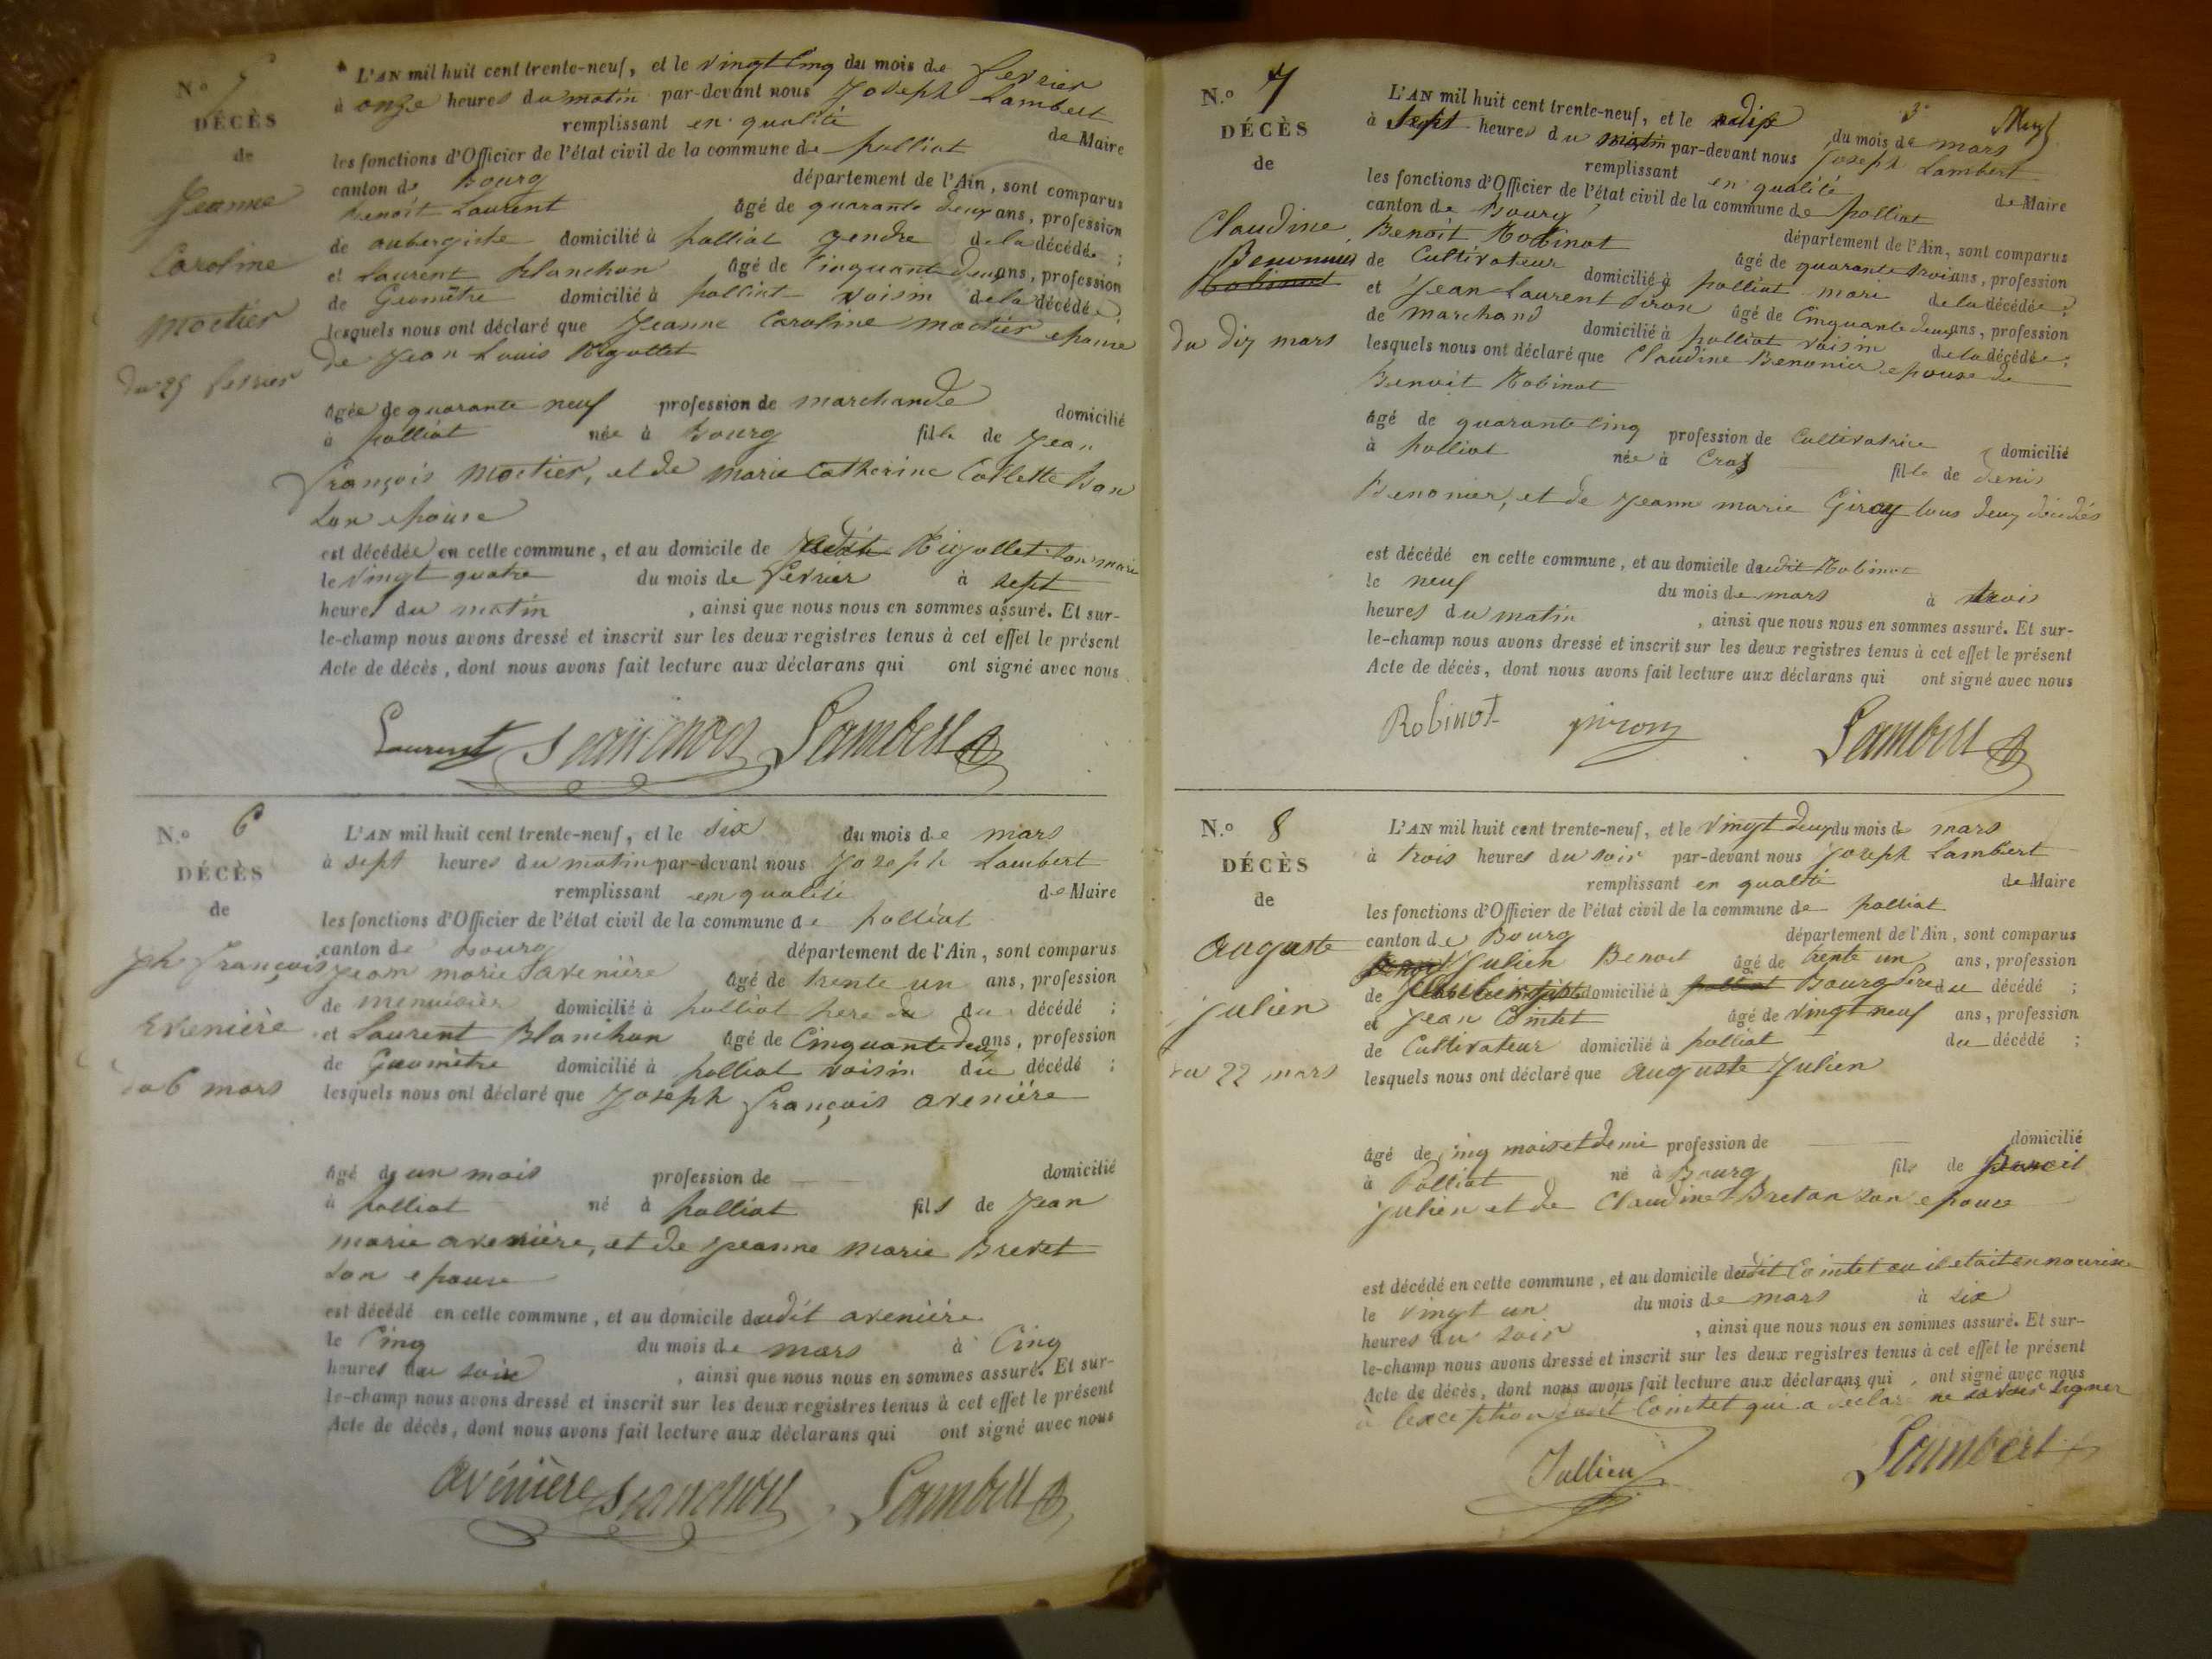 N.o 5
DÉCÈS
de
Jeanne
Caroline
Moctier
du 25 fevrier
L'AN mil huit cent trente-neuf, et le vingt Cinq du mois de fevrier
à onze heures du matin par-devant nous Joseph Lambert
remplissant en qualité de Maire
les fonctions d'Officier de l'état civil de la commune de polliat
canton de Bourg département de l'Ain, sont comparus
Benoit Laurent âgé de quarante deux ans, profession
de aubergiste domicilié à polliat gendre de la décédée ;
et Laurent Blanchon âgé de Cinquante deux ans, profession
de Géomètre domicilié à polliat voisin de la décédée ;
lesquels nous ont déclaré que Jeanne Caroline moctier epouse
de Jean Louis Rigollet
âgée de quarante neuf profession de marchande domicilié
à polliat née à Bourg fille de Jean
François Moctier, et de Marie Catherine Collette Bon
son epouse
est décédée en cette commune, et au domicile de Rigollet son mari
le vingt quatre du mois de fevrier à sept
heures du matin , ainsi que nous nous en sommes assuré. Et sur-
le-champ nous avons dressé et inscrit sur les deux registres tenus à cet effet le présent
Acte de décès, dont nous avons fait lecture aux déclarans qui ont signé avec nous
Laurent Blanchon Lambert
N.o 6
DÉCÈS
de
Jph François
Avenière
du 6 mars
L'AN mil huit cent trente-neuf, et le six du mois de mars
à sept heures du matin par-devant nous Joseph Lambert
remplissant en qualité de Maire
les fonctions d'Officier de l'état civil de la commune de polliat
canton de Bourg département de l'Ain, sont comparus
Jean marie avenière âgé de trente un ans, profession
de menuisier domicilié à polliat pere du du décédé ;
et Laurent Blanchon âgé de Cinquante deux ans, profession
de Géomètre domicilié à polliat voisin du décédé ;
lesquels nous ont déclaré que Joseph françois avenière
âgé de un mois profession de domicilié
à polliat né à polliat fils de Jean
marie avenière, et de Jeanne Marie Brevet
son epouse
est décédé en cette commune, et au domicile dudit avenière
le Cinq du mois de mars à Cinq
heures du soir , ainsi que nous nous en sommes assuré. Et sur-
le-champ nous avons dressé et inscrit sur les deux registres tenus à cet effet le présent
Acte de décès, dont nous avons fait lecture aux déclarans qui ont signé avec nous
avénière Blanchon Lambert
3e
N.o 7
DÉCÈS
de
Claudine
Benonnier
Robinot
du dix mars
L'AN mil huit cent trente-neuf, et le dix du mois de mars
à Sept heures du matin par-devant nous Joseph Lambert
remplissant en qualité de Maire
les fonctions d'Officier de l'état civil de la commune de polliat
canton de Bourg département de l'Ain, sont comparus
Benoit Robinot âgé de quarante trois ans, profession
de Cultivateur domicilié à polliat mari de la décédée ;
et Jean Laurent Piron âgé de Cinquante deux ans, profession
de marchand domicilié à polliat voisin de la décédée ;
lesquels nous ont déclaré que Claudine Benonier epouse de
Benoit Robinot
âgé de quarante Cinq profession de Cultivatrice domicilié
à polliat née à Cras fille de denis
Benonier, et de Jeanne marie Giroy tous deux décédés
est décédé en cette commune, et au domicile dudit Robinot
le neuf du mois de mars à trois
heures du matin , ainsi que nous nous en sommes assuré. Et sur-
le-champ nous avons dressé et inscrit sur les deux registres tenus à cet effet le présent
Acte de décès, dont nous avons fait lecture aux déclarans qui ont signé avec nous
Robinot piron Lambert
N.o 8
DÉCÈS
de
auguste
julien
du 22 mars
L'AN mil huit cent trente-neuf, et le vingt deux du mois de mars
à trois heures du soir par-devant nous joseph Lambert
remplissant en qualité de Maire
les fonctions d'Officier de l'état civil de la commune de polliat
canton de Bourg département de l'Ain, sont comparus
Julien Benoit âgé de trente un ans, profession
de domicilié à polliat Bourg Pere du décédé ;
et Jean Comtet âgé de vingt neuf ans, profession
de Cultivateur domicilié à polliat du décédé ;
lesquels nous ont déclaré que auguste Julien
âgé de cinq mois et demi profession de domicilié
à Polliat né à Bourg fils de Benoit
julien et de Claudine Breton son epouse
est décédé en cette commune, et au domicile dudit Comtet ou il etait en nourice
le vingt un du mois de mars à six
heures du soir , ainsi que nous nous en sommes assuré. Et sur-
le-champ nous avons dressé et inscrit sur les deux registres tenus à cet effet le présent
Acte de décès, dont nous avons fait lecture aux déclarans qui ont signé avec nous
à l'exception dudit Comtet qui a déclaré ne savoir signer
Jullien Lambert